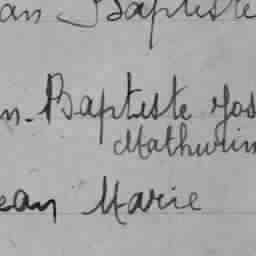 an Baptiste
n. Baptiste Jos
Mathurin
ean Marie